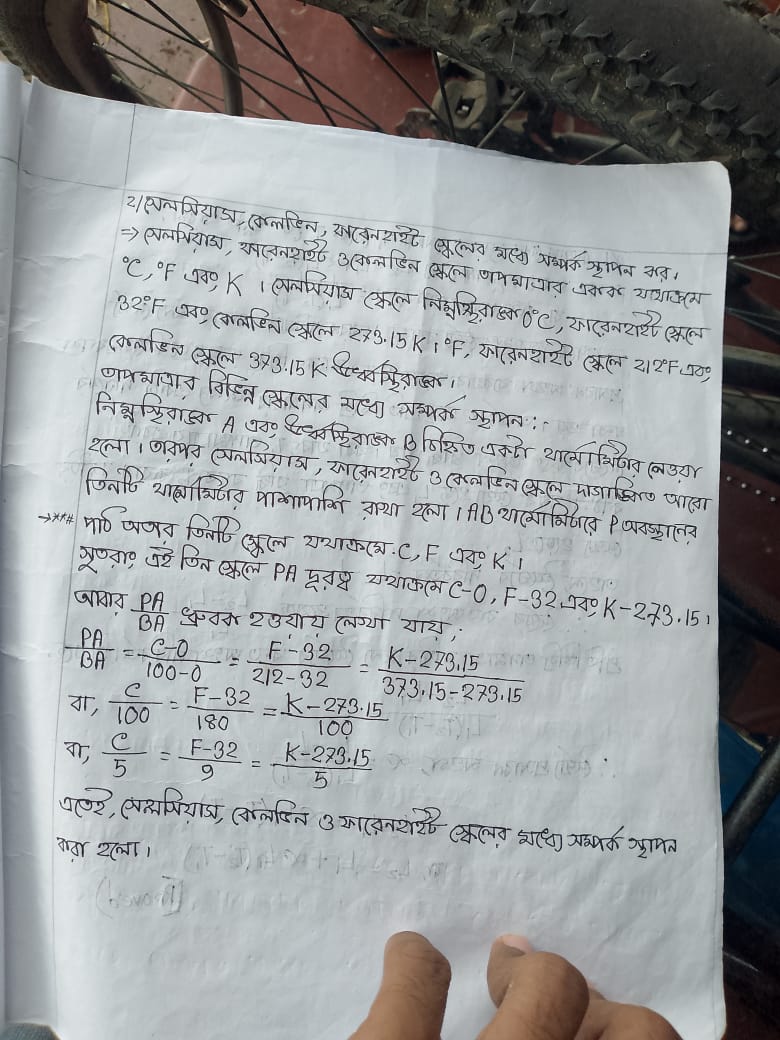 ২/সেলসিয়াস, কেলভিন, ফারেনহাইট স্কেলের মধ্যে সম্পর্ক স্থাপন কর।
⇒ সেলসিয়াস, ফারেনহাইট ও কেলভিন স্কেলে তাপমাত্রার একক যথাক্রমে
°C, °F এবং K । সেলসিয়াস স্কেলে নিম্নস্থিরাঙ্ক 0°C, ফারেনহাইট স্কেলে
32°F এবং কেলভিন স্কেলে 273.15 K । °F, ফারেনহাইট স্কেলে 212°F এবং
কেলভিন স্কেলে 373.15 K ঊর্ধ্বস্থিরাঙ্ক।
তাপমাত্রার বিভিন্ন স্কেলের মধ্যে সম্পর্ক স্থাপন:
নিম্নস্থিরাঙ্ক A এবং ঊর্ধ্বস্থিরাঙ্ক B চিহ্নিত একটা থার্মোমিটার নেওয়া
হলো। তারপর সেলসিয়াস, ফারেনহাইট ও কেলভিন স্কেলে দাগাঙ্কিত আরো
তিনটি থার্মোমিটার পাশাপাশি রাখা হলো। AB থার্মোমিটারে P অবস্থানের
→**# পাঠ অতার তিনটি স্কেলে যথাক্রমে C, F এবং K ।
সুতরাং এই তিন স্কেলে PA দূরত্ব যথাক্রমে C-0, F-32 এবং K-273.15।
আবার PA/BA ধ্রুবক হওয়ায় লেখা যায়,
PA/BA = C-0/100-0 = F-32/212-32 = K-273.15/373.15-273.15
বা, C/100 = F-32/180 = K-273.15/100
বা, C/5 = F-32/9 = K-273.15/5
এতেই, সেলসিয়াস, কেলভিন ও ফারেনহাইট স্কেলের মধ্যে সম্পর্ক স্থাপন
করা হলো।